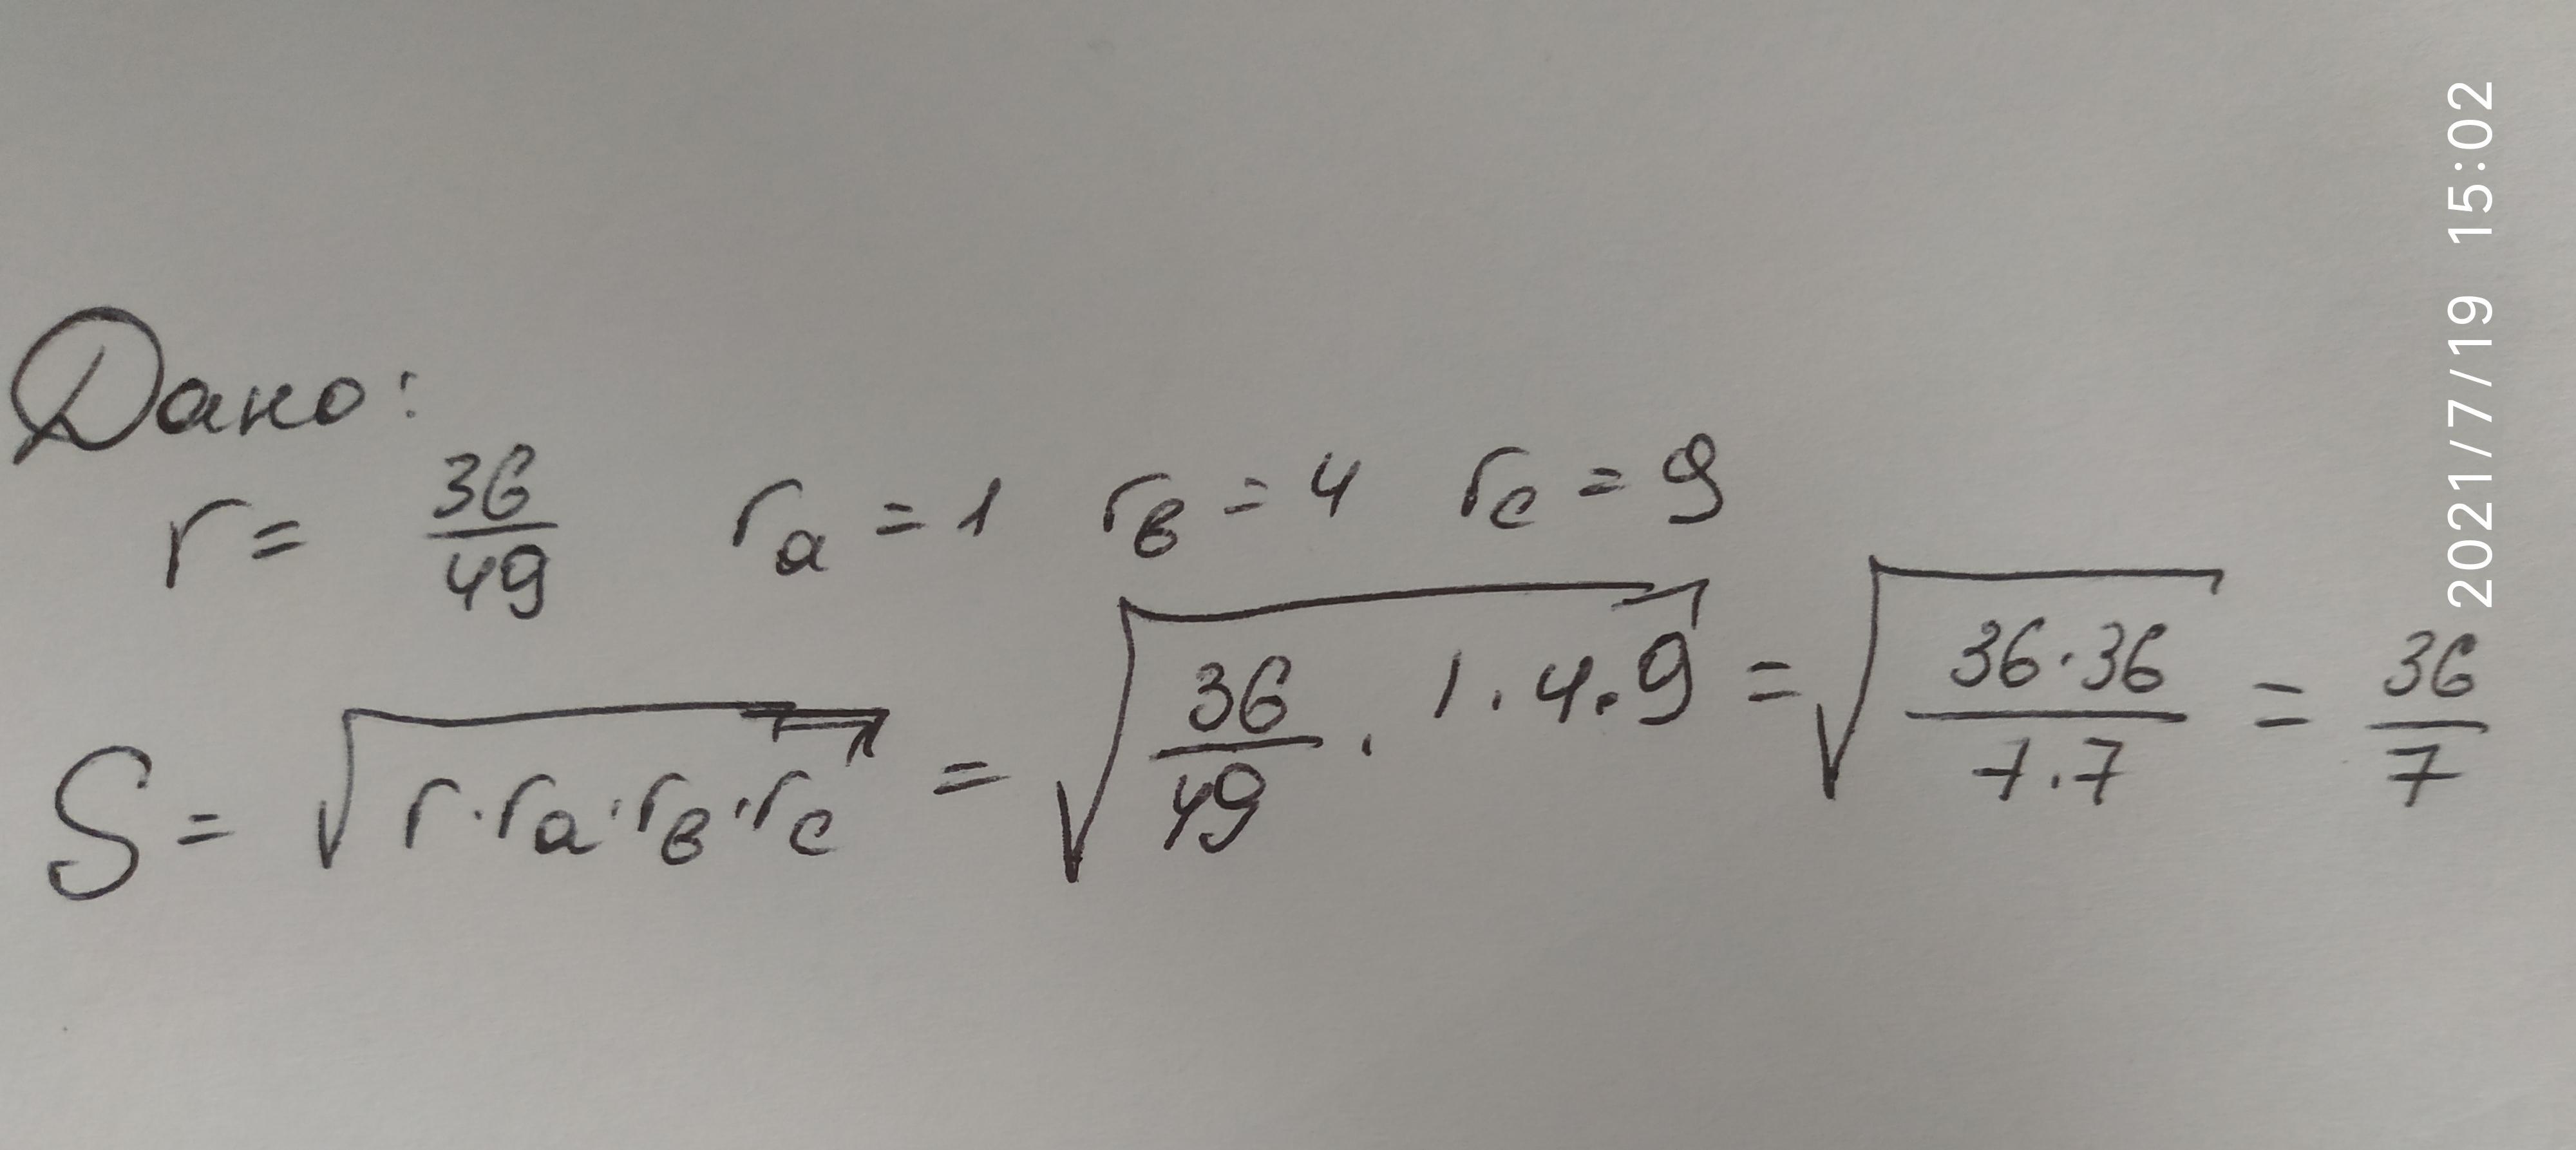 Дано:
r = 36/49 rₐ = 1 rв = 4 rс = 9
S = √(r·rₐ·rв·rс) = √(36/49 · 1·4·9) = √(36·36/7·7) = 36/7
2021/7/19 15:02